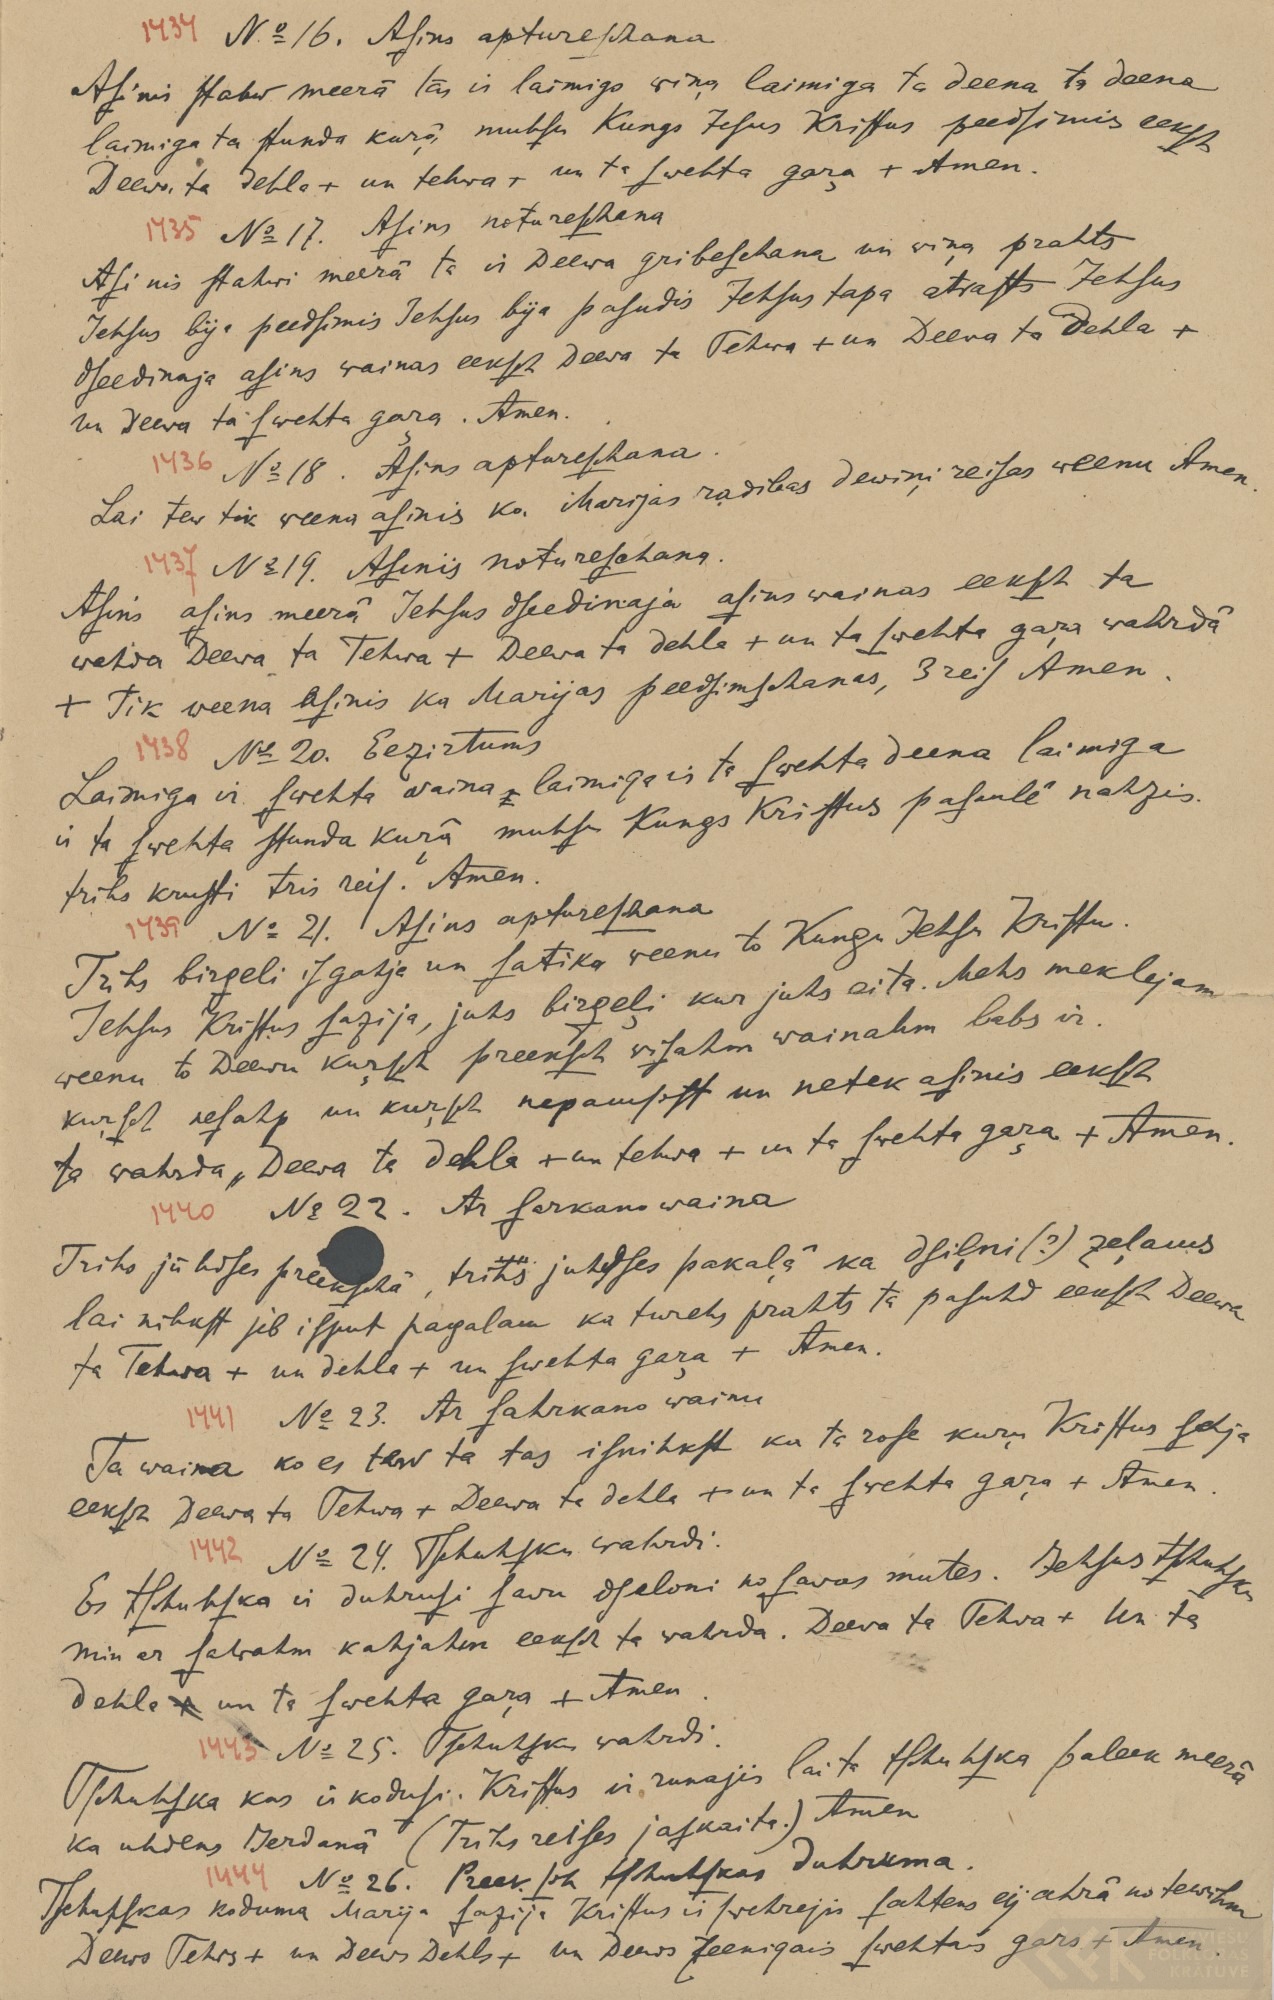 1434 № 16. Aſins aptureſchana
Aſinis ſtahw meerā tās ir laimigs wiņa laimiga ta deena ta deena
laimiga ta ſtunda kuŗā muhſu Kungs Jeſus Kriſtus peedſimis eekſch
Deewa ta dehla + un tehwa + un ta ſwehta gaŗa + Amen.
1435 № 17. Aſins notureſchana
Aſinis ſtahwi meerā ta ir Deewa gribeſchana un wiņa prahts
Jehſus bija peedſimis Jehſus bija paſudis Jehſus tapa atraſts Jehſus
dſeedinaja aſins wainas eekſch Deewa ta Tehwa + un Deewa ta Dehla +
un Deewa ta ſwehta gaŗa. Amen.
1436 № 18. Aſins aptureſchana.
Lai tew tik weena aſinis ka Marijas radibas dewiņi reiſas weenu Amen.
1437 № 19. Aſinis notureſchana.
Aſins aſins meerā Jehſus dſeedinaja aſins wainas eekſch ta
wahrda Deewa ta Tehwa + Deewa ta dehla + un ta ſwehta gaŗa wahrdā
+ Tik weena aſinis ka Marijas peedſimſchanas, 3 reiſ Amen.
1438 № 20. Eezirtums
Laimiga ir ſwehta waina, laimiga ir ta ſwehta deena laimiga
ir ta ſwehta ſtunda kuŗā muhſu Kungs Kriſtus paſaulē nahzis.
trihs kruſti tris reiſ. Amen.
1439 № 21. Aſins aptureſchana
Trihs birgeli iſgahja un ſatika weenu to Kungu Jehſu Kriſtu.
Jehſus Kriſtus ſazija, juhs birgeļi kur juhs eita. Mehs meklejam
weenu to Deewu kuŗſch preekſch wiſahm wainahm labs ir.
kuŗſch neſahp un kuŗſch nepampſt un netek aſinis eekſch
ta wahrda „Deewa ta dehla + un tehwa + un ta ſwehta gaŗa + Amen.
1440 № 22. Ar ſarkano waina
Trihs jūhdſes preekſchā, trihs juhdſes pakaļā ka dſiļni (?) zeļams
lai nihkſt jeb iſput pagalam ka turehs prahts ta paſuhd eekſch Deewa
ta Tehwa + un dehla + un ſwehta gaŗa + Amen.
1441 № 23. Ar ſahrkano wainu
Ta waina ko es tew ta tas iſnihkſt ka ta roſe kuŗu Kriſtus ſehja
eekſch Deewa ta Tehwa + Deewa ta dehla + un ta ſwehta gaŗa + Amen.
1442 № 24. Tſchuhſku wahrdi.
Es tſchuhſka ir duhruſi ſawu dſeloni no ſawas mutes. Jehſus tſchuhſku
min ar ſawahm kahjahm eekſch ta wahrda. Deewa ta Tehwa + Un ta
dehla + un ta ſwehta gaŗa + Amen.
1443 № 25. Tſchuhſku wahrdi.
Tſchuhſka kas ir koduſi. Kriſtus ir runajis lai ta tſchuhſka paleek meerā
ka uhdens Jerdanā (Trihs reiſes jaſkaita.) Amen
1444 № 26. Preekſch tſchuhſkas duhruma.
Tſchuhſkas koduma Marija ſazija Kriſtus ir ſwehrejis ſahtens eij ahrā no tewihm
Deews Tehws + un Deews Dehls + un Deews zeenigais ſwehtais gars + Amen.